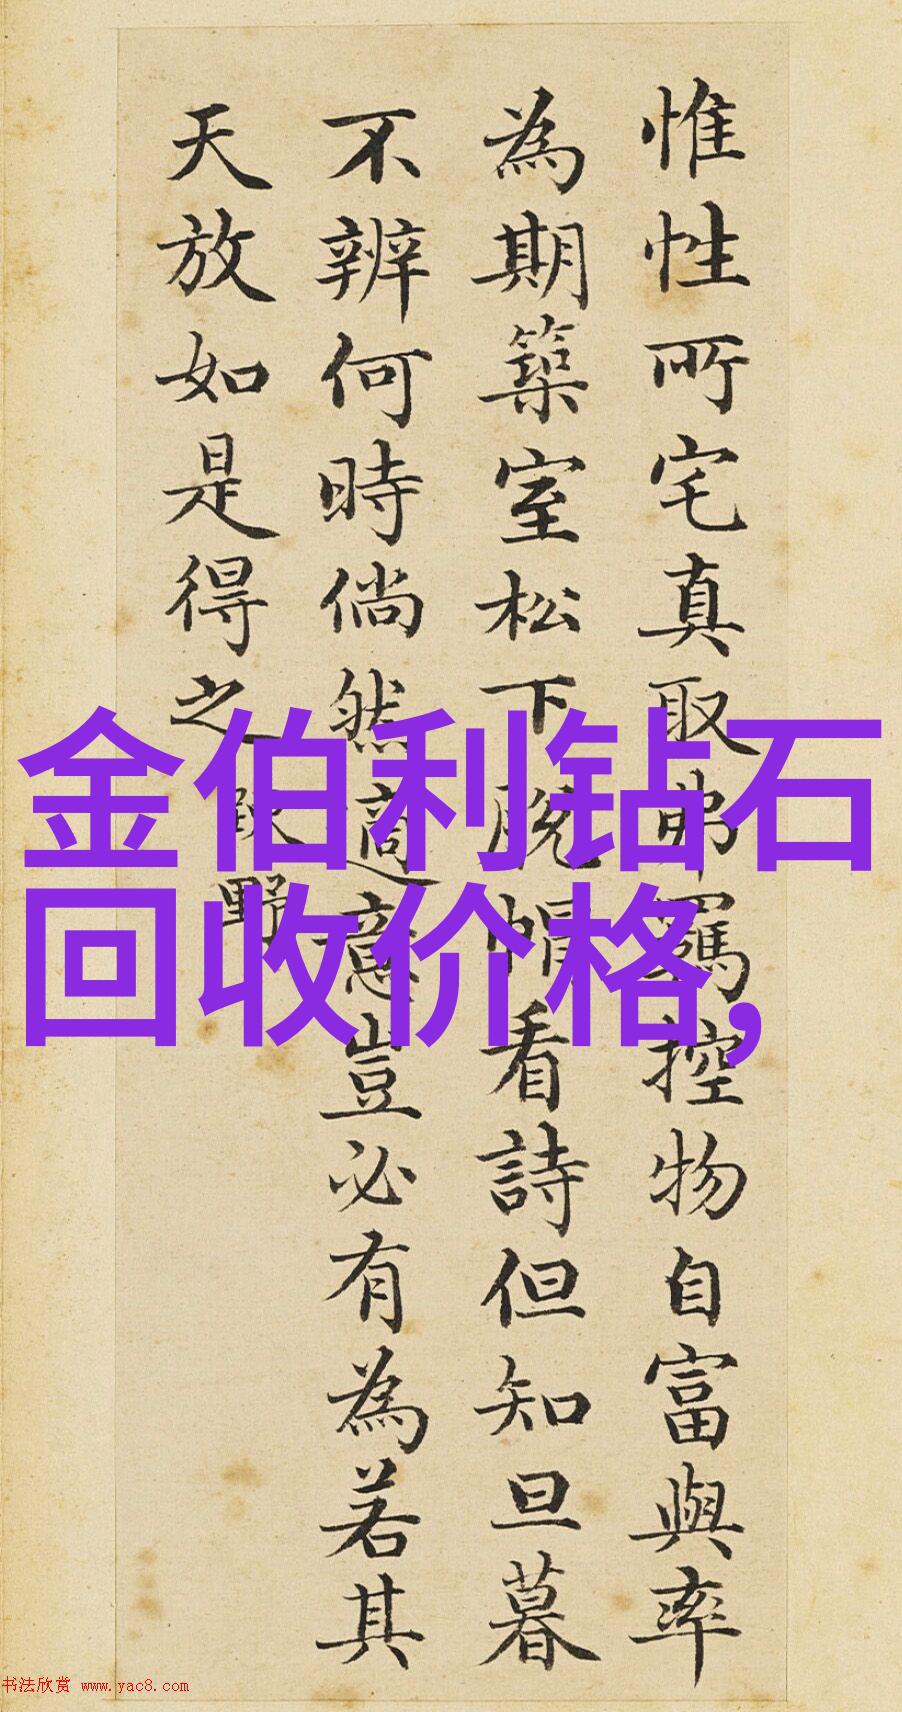 惟性所宅真取弗羈控物自富與率
為期築室松下脫帽看詩但知旦暮
不辨何時倘然適意豈必有為若其
天放如是得之 疎野
金伯利钻石
回收价格,
书法欣赏 www.yac8.com